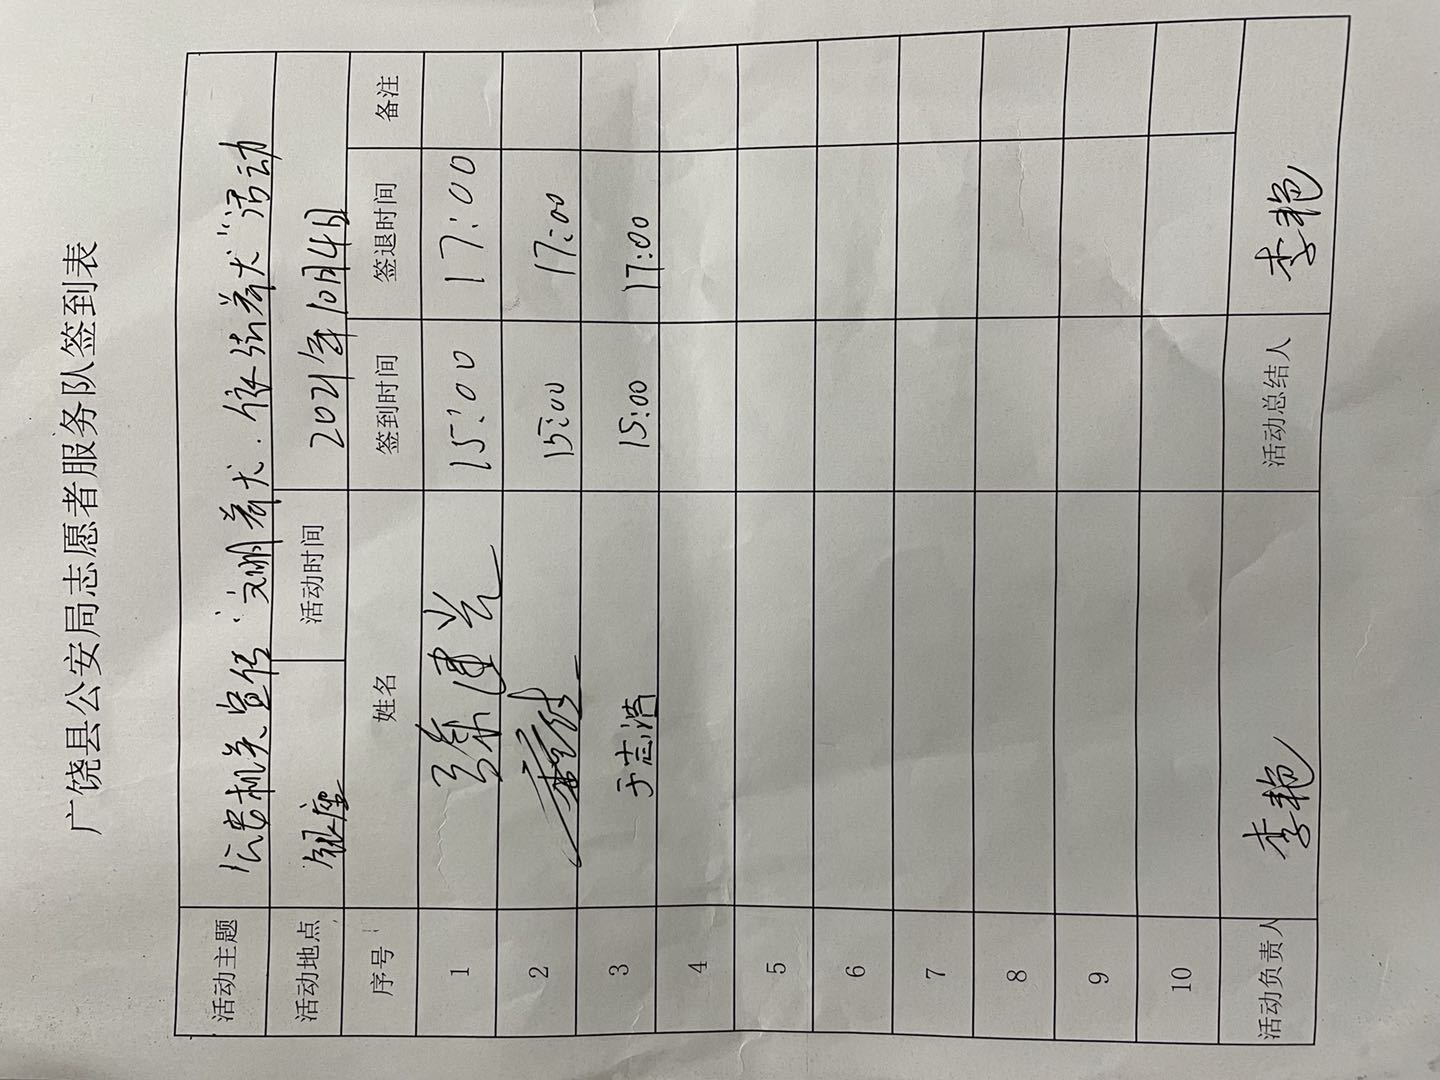 广饶县公安局志愿者服务队签到表
活动主题 公安机关宣传"文明养犬.依法养犬"活动
活动地点 银座 活动时间 2021年10月4日
序号 姓名 签到时间 签退时间 备注
1 徐建兴 15:00 17:00
2 15:00 17:00
3 于志浩 15:00 17:00
4
5
6
7
8
9
10
活动负责人 李艳 活动总结人 李艳